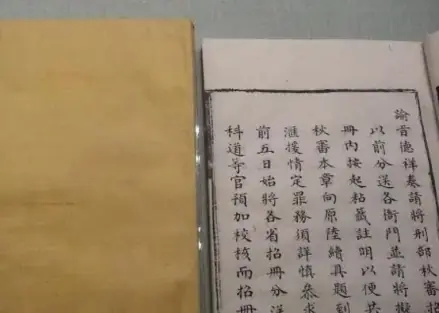 諭晉德祥奏請將刑部秋審招
以前分送各衙門並請將擬
冊內按起粘籤註明以便共
秋審本章向原陸續具題到
滙援情定罪務須詳慎恭求
前五日始將各省招冊分送
科道等官預加校核而招冊